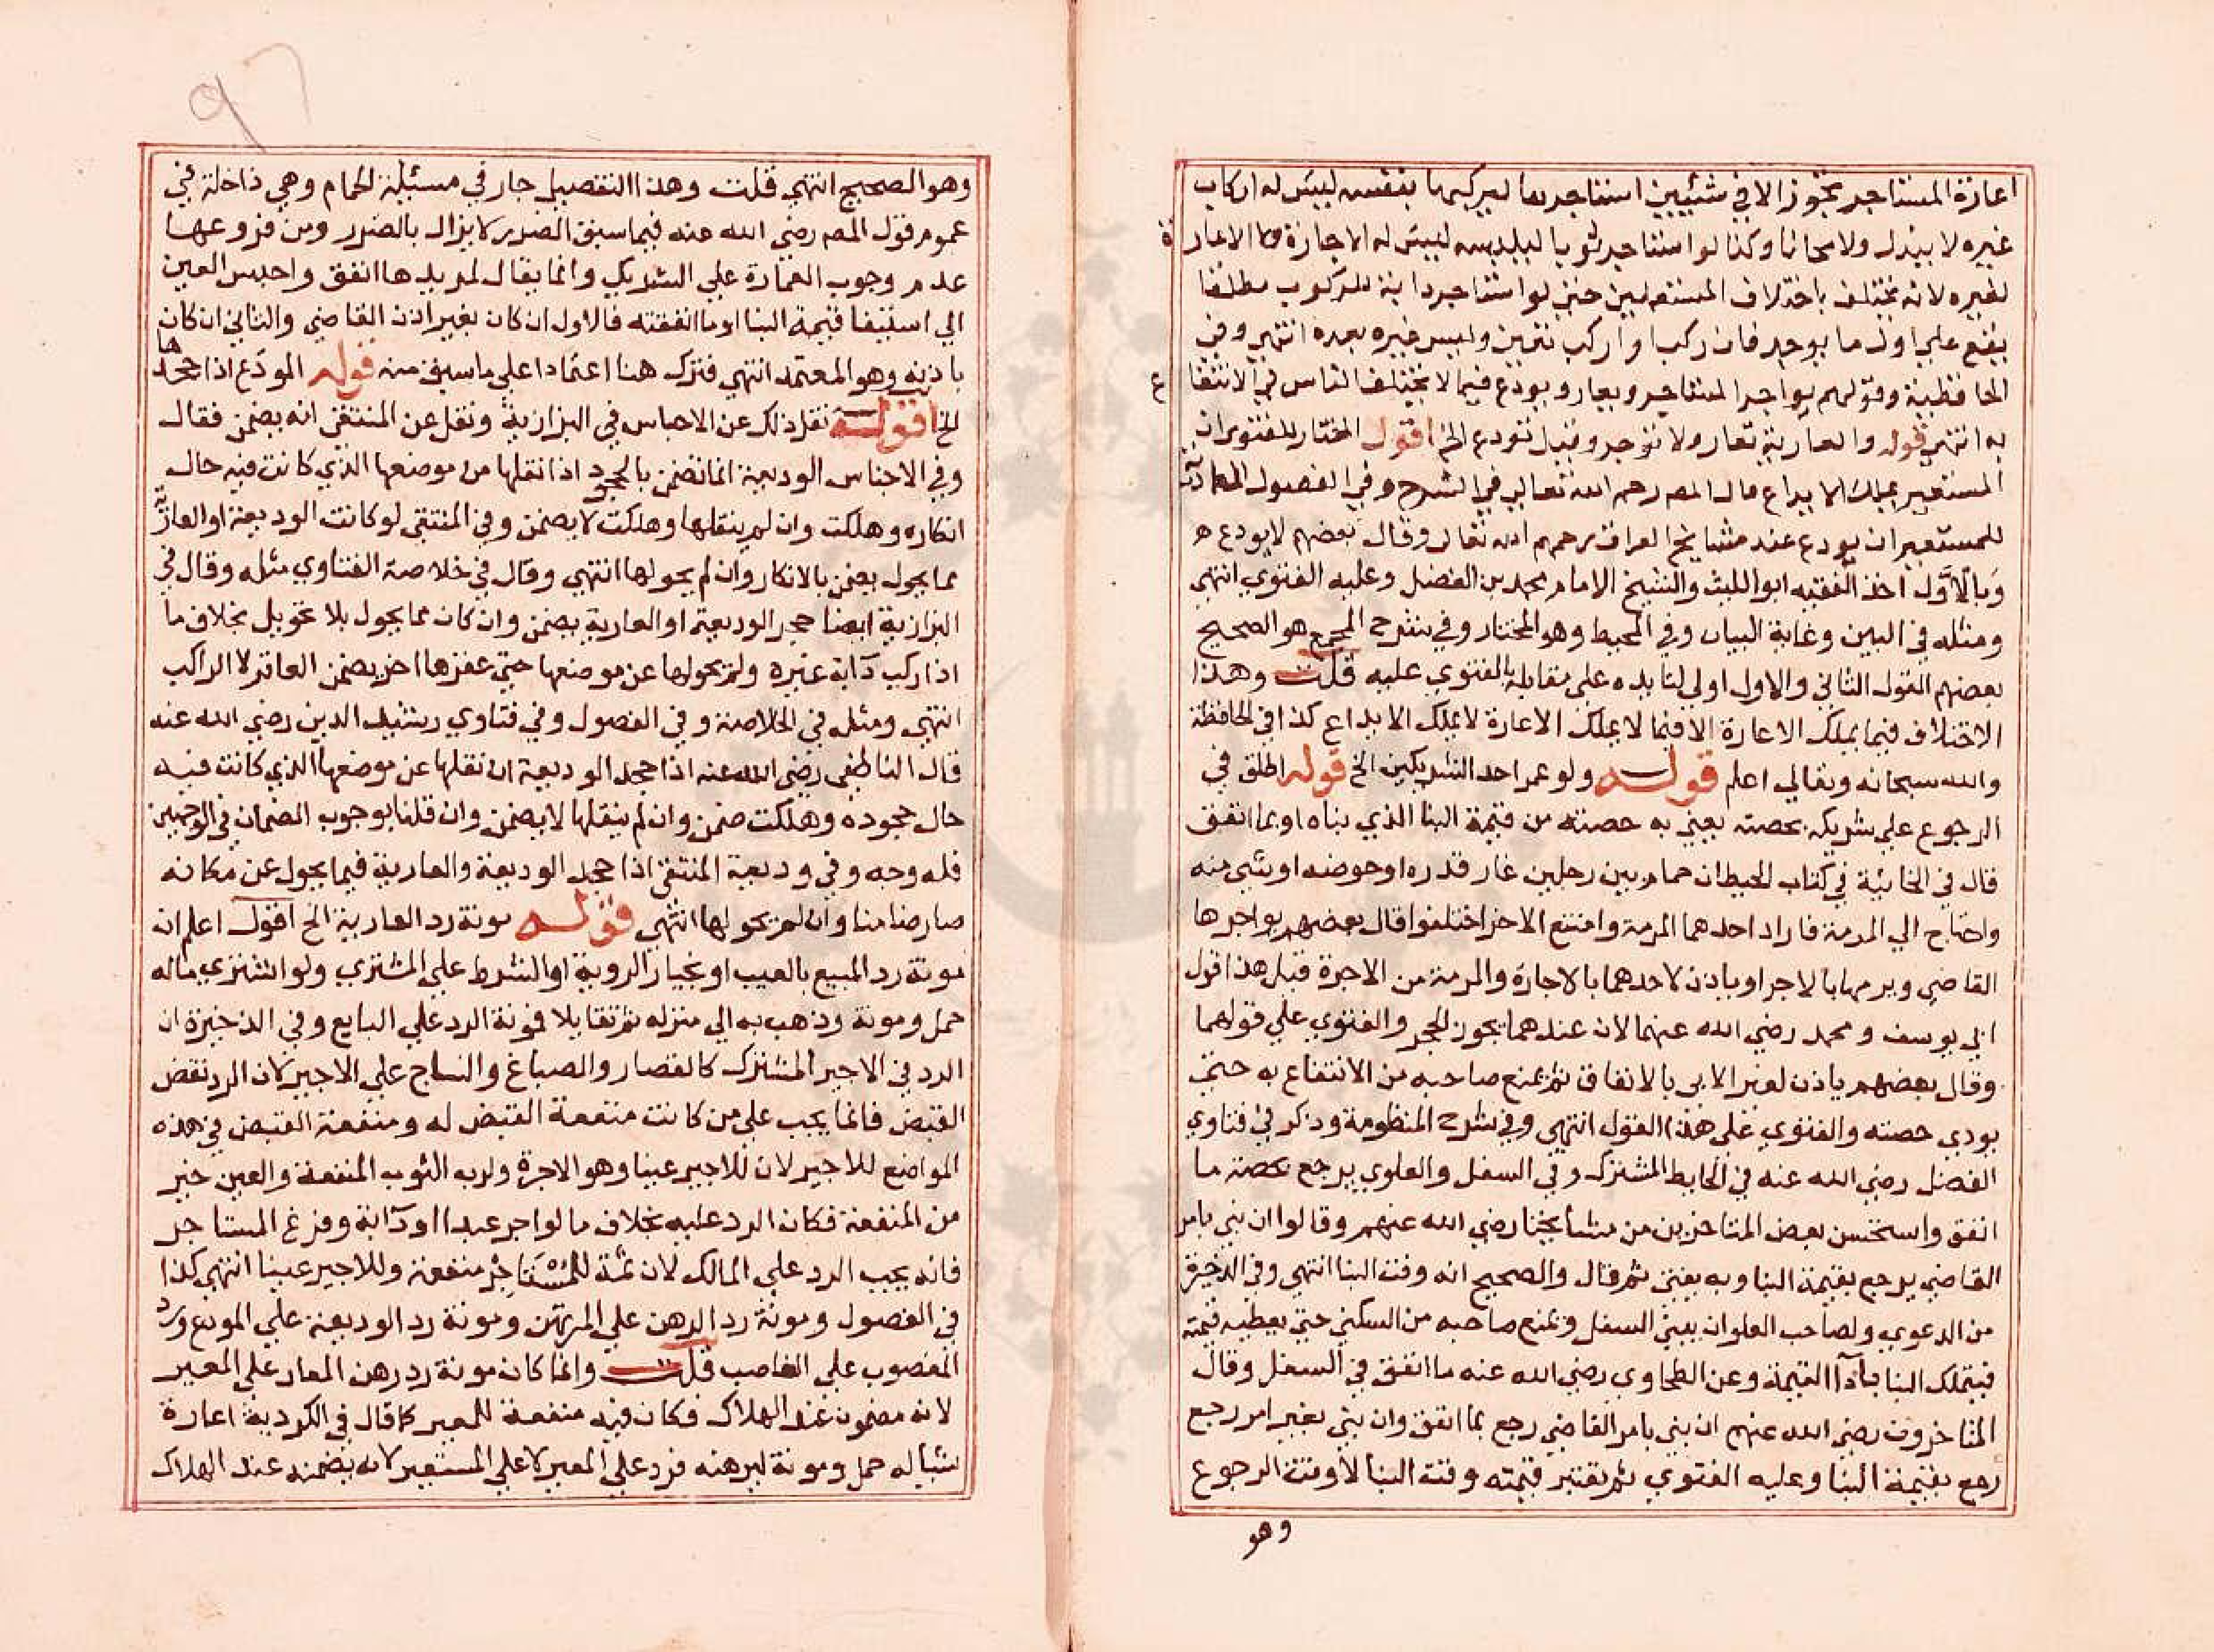 اعارة المستاجر تجوز الا في شيئين استاجرها ليركبها بنفسه ليس له اركاب
غيره لا ببدل ولا مجانا وكذا لو استاجر ثوبا ليلبسه ليس له الاجارة ولا الاعارة
لغيره لانه يختلف باختلاف المستعملين حتى لو استاجر دابة للركوب مطلقا
يقع على اول ما يوجد فان ركب او اركب تعين وليس غيره بعده انتهى وفي
الحافظية وقولهم يواجر المستاجر ويعار ويودع فيما لا يختلف الناس في الانتفاع
به انتهى قوله والعارية تعار ولا توجر وقيل تودع الخ اقول المختار للفتوى ان
المستعير يملك الايداع قال المص رحمه الله تعالى في الشرح وفي الفصول
للمستعير ان يودع عند مشايخ العراق رحمهم الله تعالى وقال بعضهم لا يودع
وبالاول اخذ الفقيه ابو الليث والشيخ الامام محمد بن الفضل وعليه الفتوي انتهي
ومثله في التبين وغاية البيان وفي المحيط وهو المختار وفي شرح المجمع هو الصحيح
بعضهم القول الثاني والاول اولي لتايده علي مقابله بالفتوي عليه قلت وهذا
الاختلاف فيما يملك الاعارة الا فيما لا يملك الاعارة لا يملك الايداع كذا في الحافظة
والله سبحانه وتعالي اعلم قوله ولو عمر احد الشريكين الخ قوله اطلق في
الرجوع علي شريكه بحصته يعني به حصته من قيمة البنا الذي بناه او بما انفق
قال في الخانية في كتاب الحيطان حمام بين رجلين غار قدره او حوضه او شي منه
واحتاج الي المرمة فاراد احدهما المرمة وامتنع الاخر اختلفوا قال بعضهم يواجرها
القاضي ويرمها بالاجر او ياذن لاحدهما بالاجارة والمرمة من الاجرة قيل هذا قول
ابي يوسف ومحمد رضي الله عنهما لان عندهما يجوز الحجر والفتوي علي قولهما
وقال بعضهم ياذن لغير الابي بالانفاق ثم يمنع صاحبه من الانتفاع به حتي
يودي حصته والفتوي علي هذا القول انتهي وفي شرح المنظومة وذكر في فتاوي
الفضل رضي الله عنه في الحايط المشترك وفي السفل والعلوي يرجع بحصة ما
انفق واستحسن بعض المتاخرين من مشايخنا رضي الله عنهم وقالوا ان بني بامر
القاضي يرجع بقيمة البنا وبه يفتى ثم قال والصحيح انه وقت البنا انتهي وفي الذخيرة
من الدعوي ولصاحب العلو ان يبني السفل ويمنع صاحبه من السكني حتي يعطيه قيمته
فيتملك البنا بادآ القيمة وعن الطحاوي رضي الله عنه ما انفق في السفل وقال
المتاخرون رضي الله عنهم ان بني بامر القاضي رجع بما انفق وان بني بغير امر رجع
رجع بقيمة البنا وعليه الفتوي ثم تعتبر قيمته وقت البنا لا وقت الرجوع
وهو
وهو الصحيح انتهي قلت وهذا التفصيل جار في مسئلة الحمام وهي داخلة في
عموم قول المص رضي الله عنه فيما سبق الضرر لا يزال بالضرر ومن فروعها
عدم وجوب العمارة علي الشريك وانما يقال لمريدها انفق واحبس العين
الي استيفا قيمة البنا او ما انفقته فالاول ان كان بغير اذن القاضي والثاني ان كان
باذنه وهو المعتمد انتهي فترك هنا اعتمادا علي ما سبق منه قوله المودع اذا جحدها
الخ اقول نقل ذلك عن الاجناس في البزازية ونقل عن المنتقي انه يضمن فقال
وفي الاجناس الوديعة انما تضمن بالجحود اذا نقلها من موضعها الذي كانت فيه حال
انكاره وهلكت وان لم ينقلها وهلكت لا يضمن وفي المنتقي لو كانت الوديعة او العارية
مما يحول يضمن بالانكار وان لم يحولها انتهي وقال في خلاصة الفتاوي مثله وقال في
البزازية ايضا جحد الوديعة او العارية يضمن وان كان مما يحول بلا تحويل بخلاف ما
اذا ركب دآبة غيره ولم يحولها عن موضعها حتي عقرها اخر يضمن العاقر لا الراكب
انتهي ومثله في الخلاصة وفي الفصول وفي فتاوي رشيد الدين رضي الله عنه
قال الناطفي رضي الله عنه اذا جحد الوديعة ان نقلها عن موضعها الذي كانت فيه
حال جحوده وهلكت ضمن وان لم ينقلها لا يضمن وان قلنا بوجوب الضمان في الوجهين
فله وجه وفي وديعة المنتقي اذا جحد الوديعة والعارية فيما يحول عن مكانه
صار ضامنا وان لم يحولها انتهي قوله مونة رد العارية الخ اقول اعلم ان
مونة رد المبيع بالعيب او بخيار الروية او الشرط علي المشتري ولو اشتري ماله
حمل ومونة وذهب به الي منزله ثم تقايلا فمونة الرد علي البايع وفي الذخيرة ان
الرد في الاجير المشترك كالقصار والصباغ والنساج علي الاجير لان الرد نقض
القبض فانما يجب علي من كانت منفعة القبض له ومنفعة القبض في هذه
المواضع للاجير لان للاجير عينا وهو الاجرة ولرب الثوب المنفعة والعين خير
من المنفعة فكان الرد عليه بخلاف ما لو اجر عبدا او دآبة وفرغ المستاجر
فانه يجب الرد علي المالك لان ثمة للمستاجر منفعة وللاجير عينا انتهي كذا
في الفصول ومونة رد الرهن علي المرتهن ومونة رد الوديعة علي المودع ورد
المغصوب علي الغاصب قلت وانما كان مونة رد رهن المعار علي المعير
لانه مضمون عند الهلاك فكان فيه منفعة للمعير كما قال في الكردية اعارة
شيا له حمل ومونة ليرهنه فرد علي المعير لا علي المستعير لانه يضمنه عند الهلاك